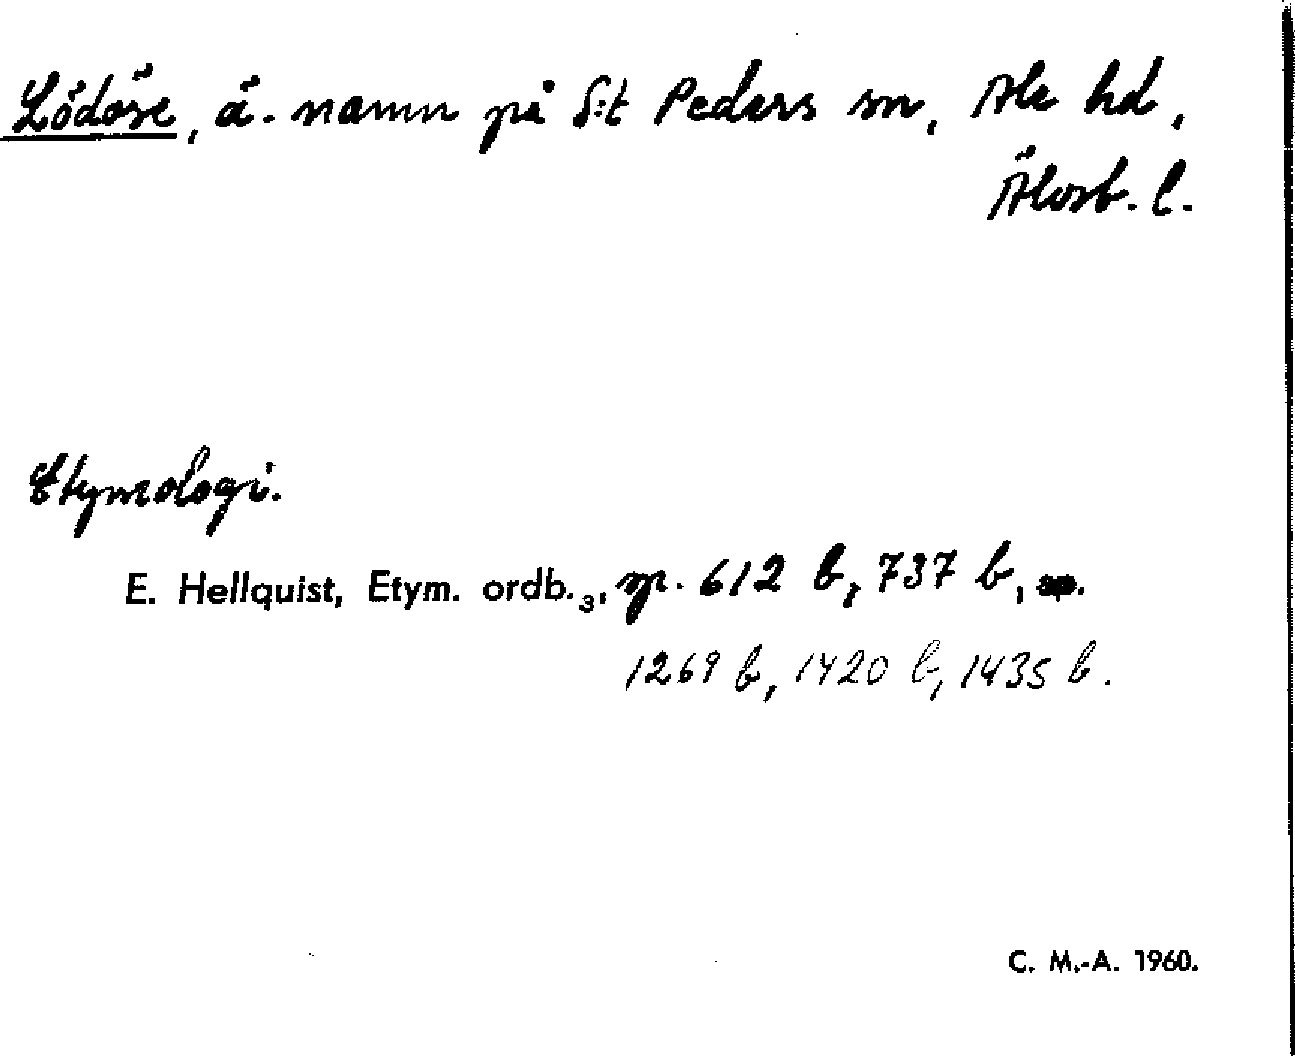 Lödöse, ä. namn på S:t Peders sn, Ale hd,
Älvsb. l.
Etymologi.
E. Hellquist, Etym. ordb.3, sp. 612 b, 737 b,
1269 b, 1420 b, 1435 b.
C. M.-A. 1960.